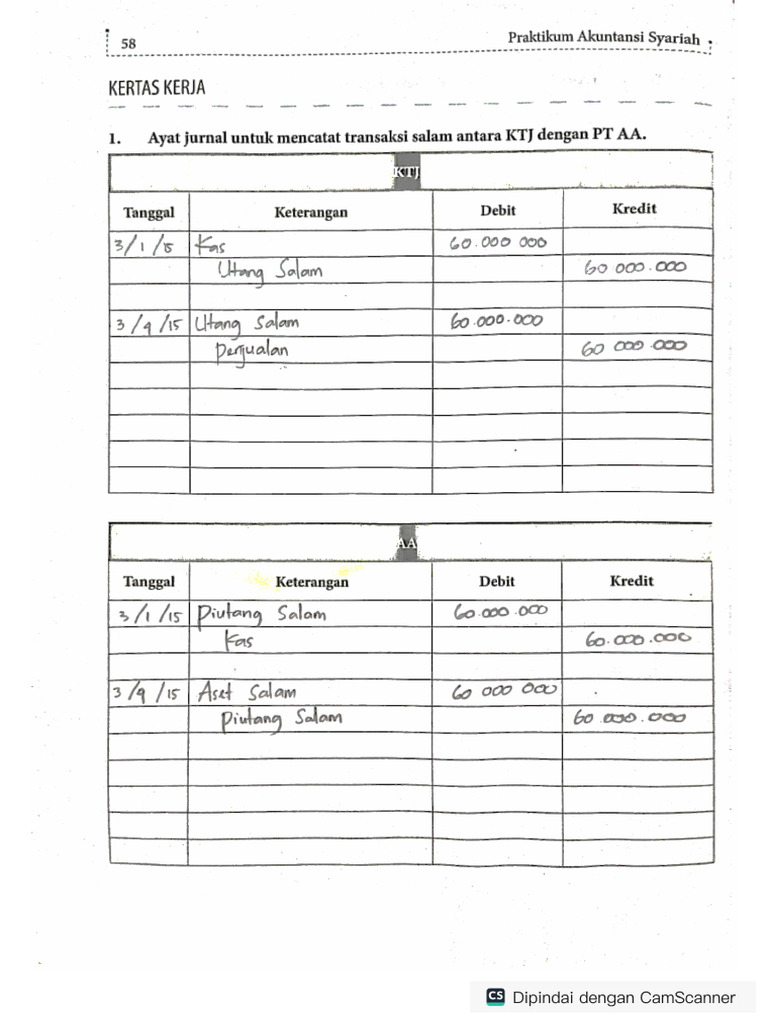 58
Praktikum Akuntansi Syariah
KERTAS KERJA
1. Ayat jurnal untuk mencatat transaksi salam antara KTJ dengan PT AA.
KTJ
Tanggal Keterangan Debit Kredit
3/1/15 Kas 60.000 000
Utang Salam 60 000.000
3/9/15 Utang Salam 60.000.000
Penjualan 60 000 000
AA
Tanggal Keterangan Debit Kredit
3/1/15 Piutang Salam 60.000.000
Kas 60.000.000
3/9/15 Aset Salam 60 000 000
Piutang Salam 60.000.000
CS Dipindai dengan CamScanner